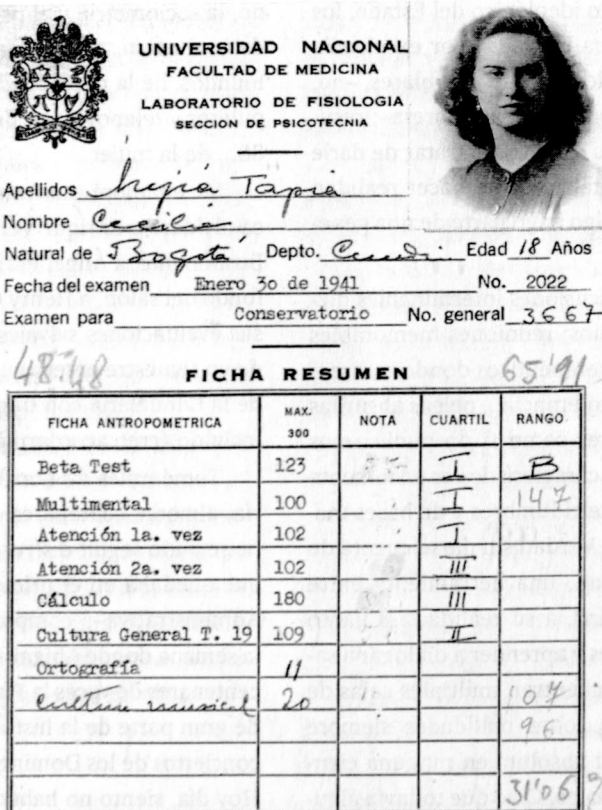 UNIVERSIDAD NACIONAL
FACULTAD DE MEDICINA
LABORATORIO DE FISIOLOGIA
SECCION DE PSICOTECNIA
Apellidos Mejía Tapia
Nombre Cecilia
Natural de Bogotá Depto. Cund. Edad 18 Años
Fecha del examen Enero 3o de 1941 No. 2022
Examen para Conservatorio No. general 3667
48.48 FICHA RESUMEN 65'91
FICHA ANTROPOMETRICA MAX. 300 NOTA CUARTIL RANGO
Beta Test 123 I B
Multimental 100 I 147
Atención 1a. vez 102 I
Atención 2a. vez 102 III
Cálculo 180 III
Cultura General T. 19 109 II
Ortografía 11
Cultura musical 20 07
96
31'06